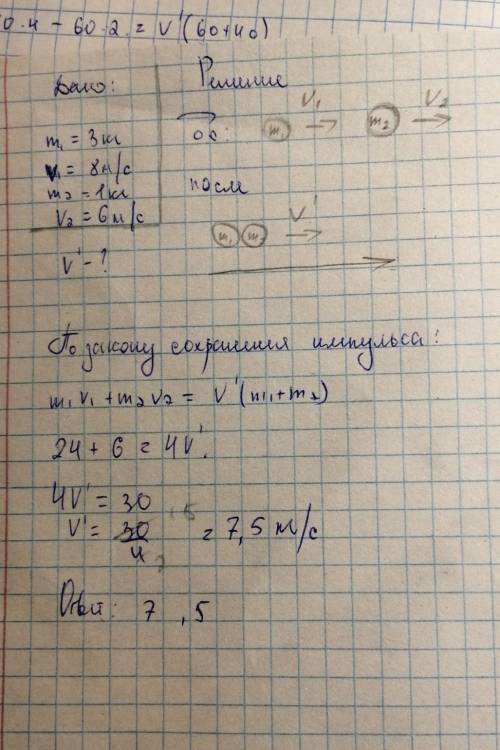 0·4 - 60·2 = V'(60+40)
Дано:
Решение
m₁ = 3 кг
V₁ = 8 м/с
m₂ = 1 кг
V₂ = 6 м/с
V' - ?
до:
m₁
V₁
m₂
V₂
после
m₁ m₂
V'
По закону сохранения импульса:
m₁V₁ + m₂V₂ = V'(m₁+m₂)
24 + 6 = 4V'.
4V' = 30
V' = 30/4 = 7,5 м/с
Ответ: 7,5